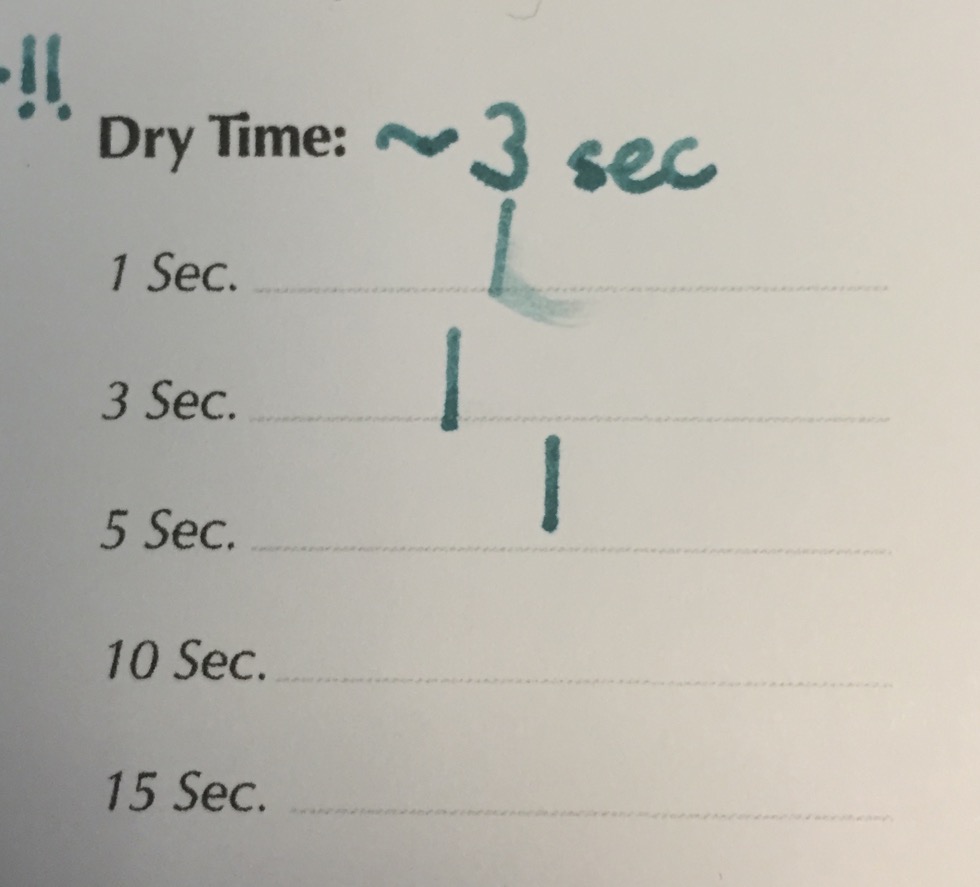 !!
Dry Time: ~3 sec
1 Sec.
3 Sec.
5 Sec.
10 Sec.
15 Sec.